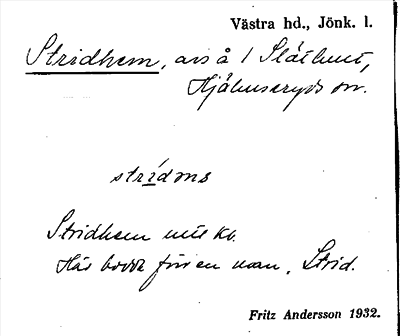 Västra hd., Jönk. l.
Stridhem, avs å 1 Slät
Hjälmseryds
strídms
Stridhem
Här bodde för en man, Strid.
Fritz Andersson 1932.